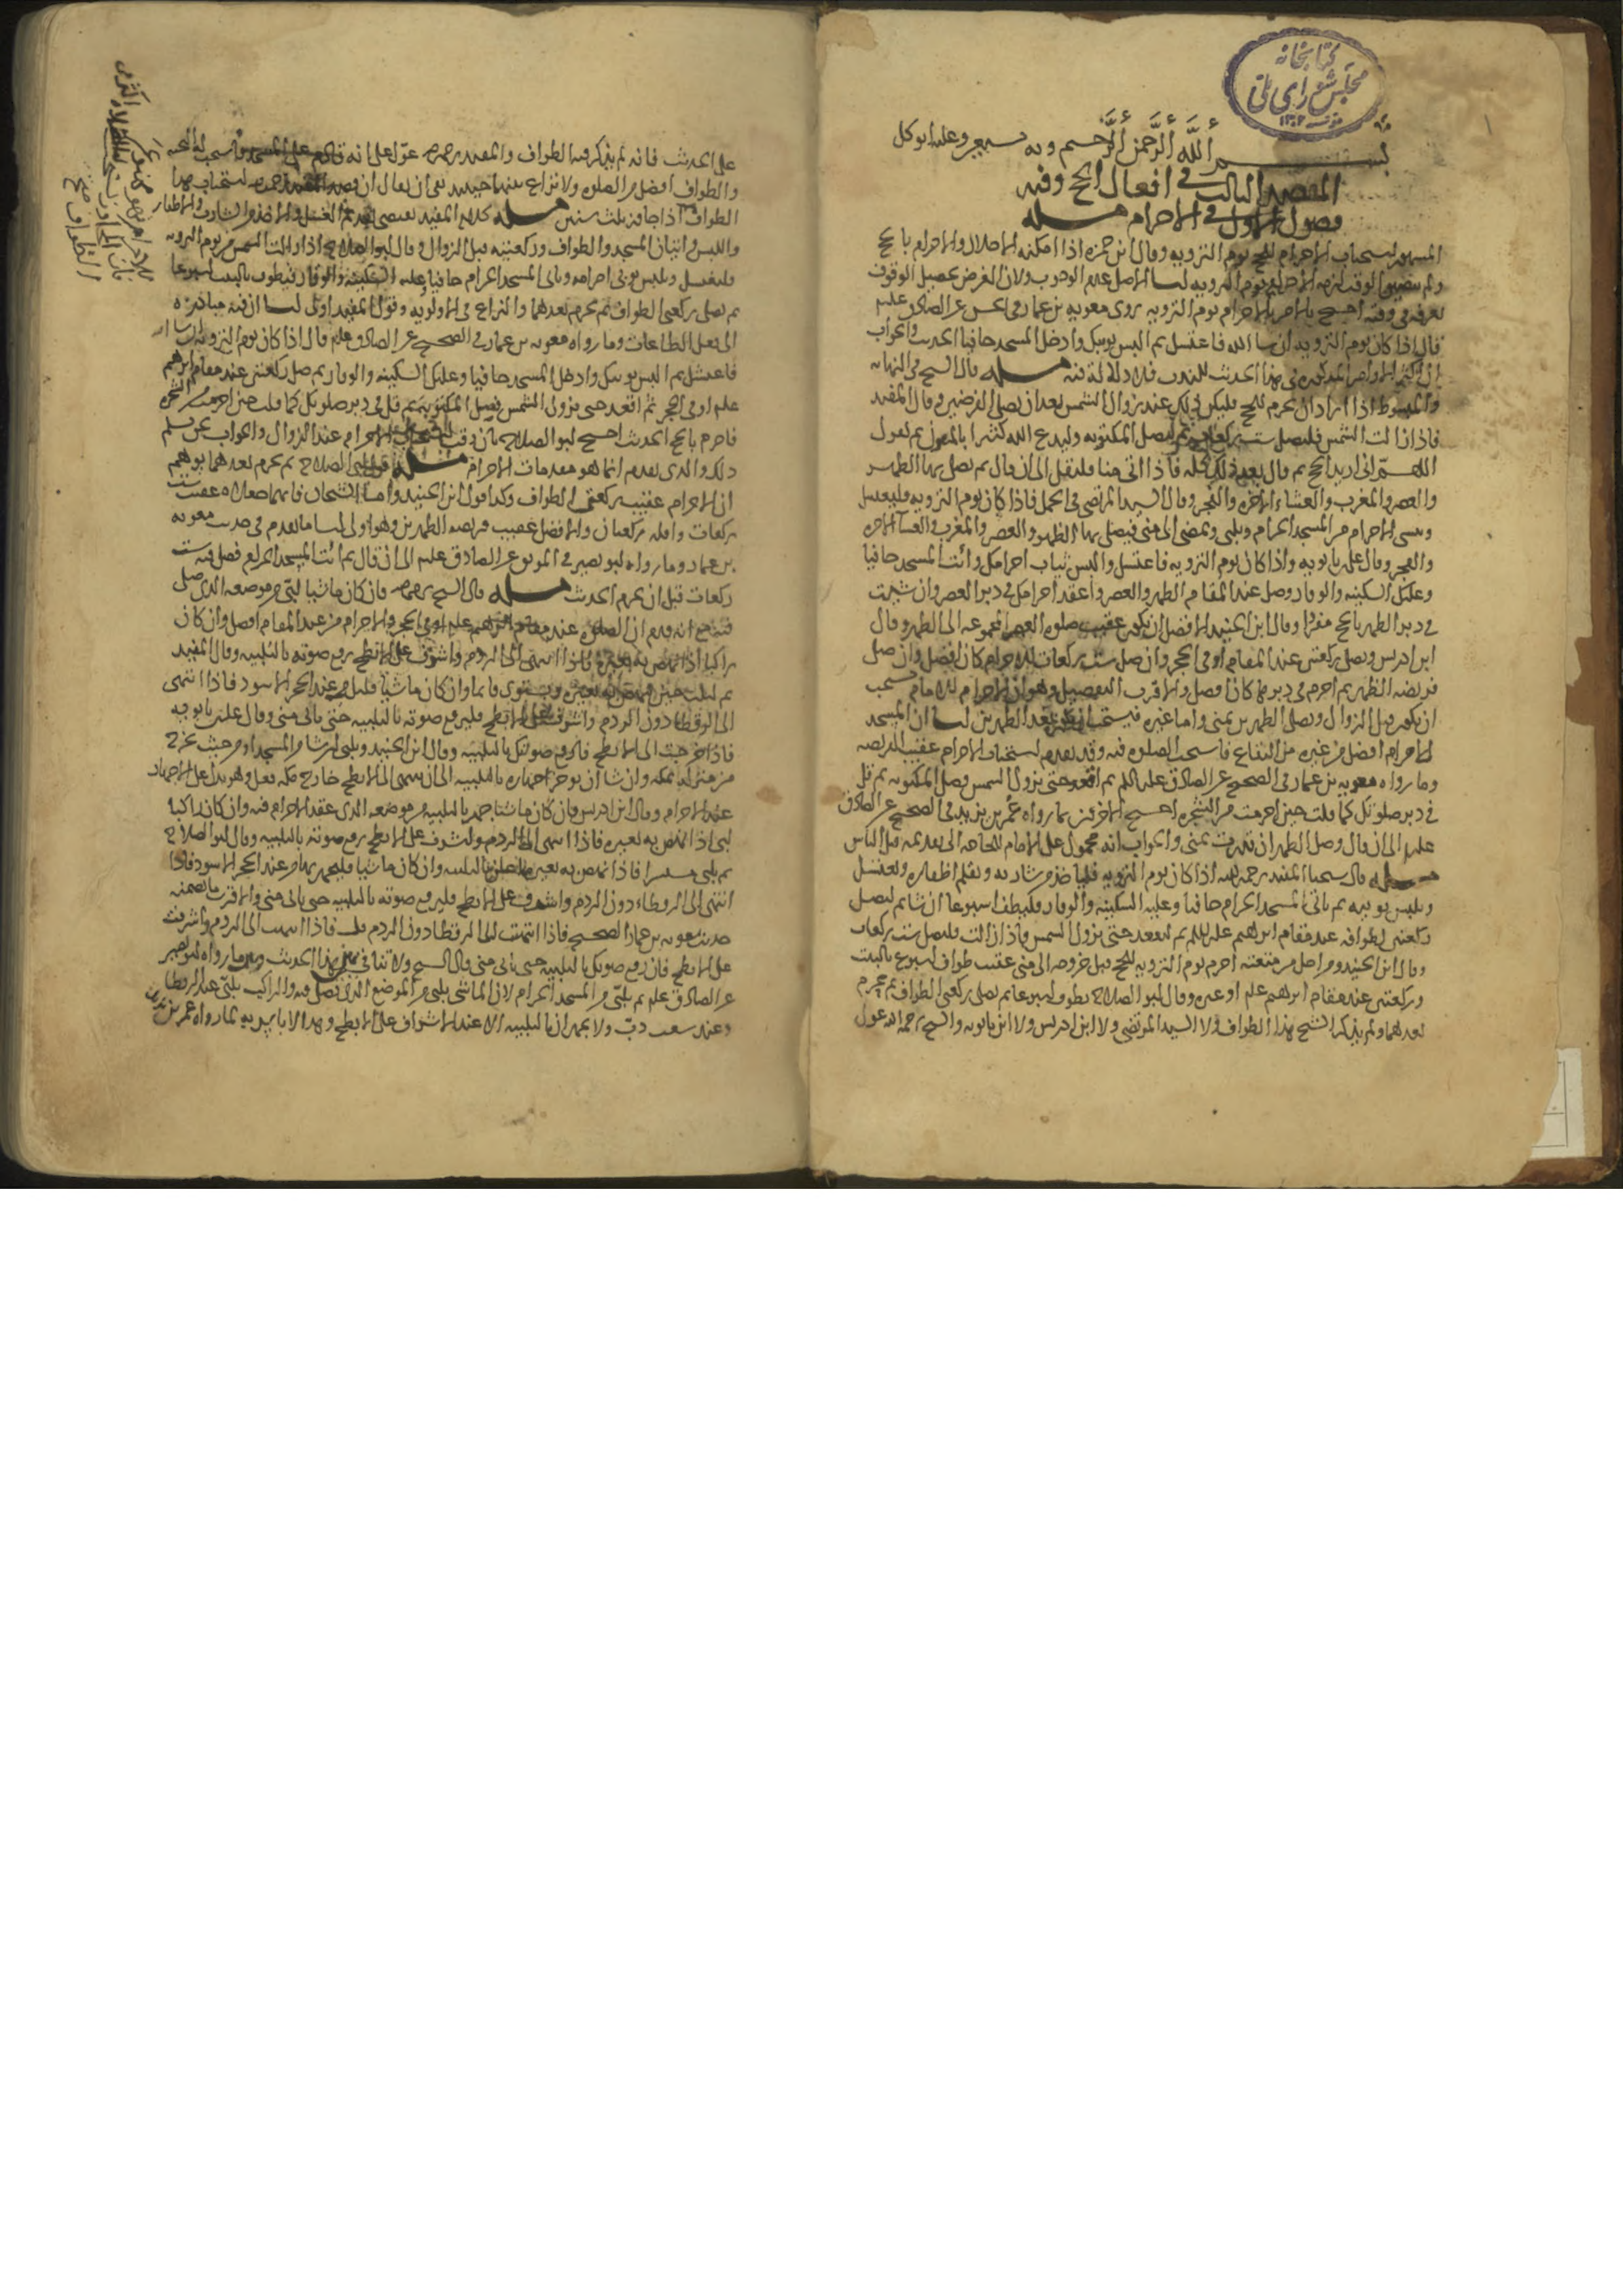 كتابخانه
مجلس شورای ملی
١٣٠٢
بسم الله الرحمن الرحيم وبه نستعين وعليه اتوكل
المقصد الثالث في افعال الحج وفيه
فصول الاول في الاحرام مسله
المشهور استحباب الاحرام للحج يوم الترويه وقال ابن حمزه اذا امكنه الاحلال والاحرام بالحج
ولم يتضيق الوقت لزمه الاحرام يوم الترويه لنا الاصل عدم الوجوب ولان الغرض تحصيل الوقوف
بعرفه في وقته احتج بالامر بالاحرام يوم الترويه روى معويه بن عمار في الحسن عن الصادق عليه
قال اذا كان يوم الترويه ان شا الله فاغتسل ثم البس ثوبيك وادخل المسجد حافيا الحديث والجواب
ان اكثر الاوامر المذكوره في هذا الحديث للندب فلا دلالة فيه مسله قال الشيخ في النهايه
والمبسوط اذا اراد ان يحرم للحج فليكن ذلك عند زوال الشمس بعد ان يصلي الفرضين وقال المفيد
فاذا زالت الشمس فليصل ست ركعات ثم ليصل المكتوبه وليدع الله كثيرا بالعون ثم يقول
اللهم اني اريد الحج ثم قال بعد ذلك كله فاذا اتى منا فليقل الى ان قال ثم يصلي بها الظهر
والعصر والمغرب والعشاء الاخره والفجر وقال السيد المرتضى في الجمل فاذا كان يوم الترويه فليغتسل
وينشي الاحرام من المسجد الحرام ويلبي ويمضي الى منى فيصلي بها الظهر والعصر والمغرب والعشآ الاخره
والفجر وقال علي بن بابويه واذا كان يوم الترويه فاغتسل والبس ثياب احرامك وائت المسجد حافيا
وعليك السكينه والوقار وصل عند المقام الظهر والعصر واعقد احرامك في دبر العصر وان شئت
في دبر الظهر بالحج مفردا وقال ابن الجنيد الافضل ان يكون عقيب صلوه العصر المجموعه الى الظهر وقال
ابن ادريس ويصلي ركعتين عند المقام او في الحجر وان صلى ست ركعات للاحرام كان افضل وان صلى
فريضه الظهر ثم احرم في دبرها كان افضل والاقرب التفصيل وهو ان الاحرام للامام يستحب
ان يكون قبل الزوال ويصلي الظهرين بمنى واما غيره فيستحب ان يكون بعد الظهرين لنا ان المسجد
الحرام افضل من غيره من البقاع فاستحب الصلوه فيه وقد تقدم استحباب الاحرام عقيب الفريضه
وما رواه معويه بن عمار في الصحيح عن الصادق عليه السلام ثم اقعد حتى تزول الشمس فصل المكتوبه ثم قل
في دبر صلوتك كما قلت حين احرمت من الشجره احتج الاخرون بما رواه عمر بن يزيد في الصحيح عن الصادق
عليه الى ان قال وصل الظهر ان قدرت بمنى والجواب انه محمول على الامام للحاجه الى تقدمه قبل الناس
مسله قال شيخنا المفيد رحمه الله اذا كان يوم الترويه فلياخذ من شاربه ويقلم اظفاره ويغتسل
ويلبس ثوبيه ثم ياتي المسجد الحرام حافيا وعليه السكينه والوقار فليطف اسبوعا ان شا ثم ليصل
ركعتين لطوافه عند مقام ابرهيم عليه السلام ثم ليقعد حتى تزول الشمس فاذا زالت فليصل ست ركعات
وقال ابن الجنيد ومن احل من متعته احرم يوم الترويه للحج قبل خروجه الى منى عقيب طواف اسبوع بالبيت
وركعتين عند مقام ابرهيم علم او غيره وقال ابو الصلاح يطوف اسبوعا ثم يصلي ركعتي الطواف ثم يحرم
بعدهما ولم يذكر الشيخ هذا الطواف ولا السيد المرتضى ولا ابن ادريس ولا ابن بابويه والشيخ رحمه الله عول
على الحديث فانه لم يذكر فيه الطواف والمفيد رحمه عول على انه قادم على المسجد فاستحب له التحيه
والطواف افضل من الصلوه ولا نزاع بينهما حينئذ
الطواف اذا جاز ثلث سنين مسله كلام المفيد يقتضي تقديم الغسل والاخذ من الشارب والاظفار
واللبس واتيان المسجد والطواف وركعتيه قبل الزوال وقال ابو الصلاح اذا زالت الشمس من يوم الترويه
فليغتسل ويلبس ثوبي احرامه وياتي المسجد الحرام حافيا وعليه السكينه والوقار فيطوف بالبيت اسبوعا
ثم يصلي ركعتي الطواف ثم يحرم بعدهما والنزاع في الاولويه وقول المفيد اولى لنا ان فيه مبادره
الى فعل الطاعات وما رواه معويه بن عمار في الصحيح عن الصادق علم قال اذا كان يوم الترويه
فاغتسل ثم البس ثوبيك وادخل المسجد حافيا وعليك السكينه والوقار ثم صل ركعتين عند مقام ابرهيم
علم او في الحجر ثم اقعد حتى تزول الشمس فصل المكتوبه ثم قل في دبر صلوتك كما قلت حين احرمت من الشجره
فاحرم بالحج الحديث احتج ابو الصلاح بان وقت الاحرام عند الزوال والجواب نحن نسلم
ذلك والذي تقدم انما هو مقدمات الاحرام مسله قول ابي الصلاح ثم يحرم بعدهما يوهم
ان الاحرام عقيب ركعتي الطواف وكذا قول ابن الجنيد واما الشيخان فانهما جعلاه عقيب ست
ركعات واقله ركعتان والافضل عقيب فريضه الظهرين وهو اولى لنا ما تقدم في حديث معويه
بن عمار وما رواه ابو بصير في الموثق عن الصادق علم الى ان قال ثم ائت المسجد الحرام فصل فيه ست
ركعات قبل ان تحرم الحديث مسله قال الشيخ رحمه فان كان ماشيا لبى من موضعه الذي صلى
راكبا اذا نهض به بعيره فاذا انتهى الى الردم واشرف على الابطح رفع صوته بالتلبيه وقال المفيد
ثم ليلب حين ينهض به بعيره ويستوي قائما وان كان ماشيا فليلب من عند الحجر الاسود فاذا انتهى
الى الرقطا دون الردم واشرف على الابطح فليرفع صوته بالتلبيه حتى ياتي منى وقال علي بن بابويه
فاذا خرجت الى الابطح فارفع صوتك بالتلبيه وقال ابن الجنيد ويلبي ان شا من المسجد او من حيث يخرج
من منزله بمكه وان شا ان يوخر اجهاره بالتلبيه الى ان ينتهي الى الابطح خارج مكه فعل وهو يدل على الاجهار
عند الاحرام وقال ابن ادريس فان كان ماشيا جهر بالتلبيه من موضعه الذي عقد الاحرام فيه وان كان راكبا
لبى اذا نهض به بعيره فاذا انتهى الى الردم واشرف على الابطح رفع صوته بالتلبيه وقال ابو الصلاح
ثم يلبي مسرا فاذا نهض به بعيره اعلن بالتلبيه وان كان ماشيا فليجهر بها من عند الحجر الاسود فاذا
انتهى الى الرقطاء دون الردم واشرف على الابطح فليرفع صوته بالتلبيه حتى ياتي منى والاقرب ما تضمنه
حديث معويه بن عمار الصحيح فاذا انتهيت الى الرقطا دون الردم فلب فاذا انتهيت الى الردم واشرفت
على الابطح فارفع صوتك بالتلبيه حتى تاتي منى قال الشيخ ولا تنافي بين هذا الحديث وبين ما رواه ابو بصير
عن الصادق علم ثم تلبي من المسجد الحرام لان الماشي يلبي من الموضع الذي يصلي فيه والراكب يلبي عند الرقطا
وعند شعب دب ولا يجهران بالتلبيه الا عند الاشراف على الابطح وهذا لا باس به لما رواه عمر بن يزيد